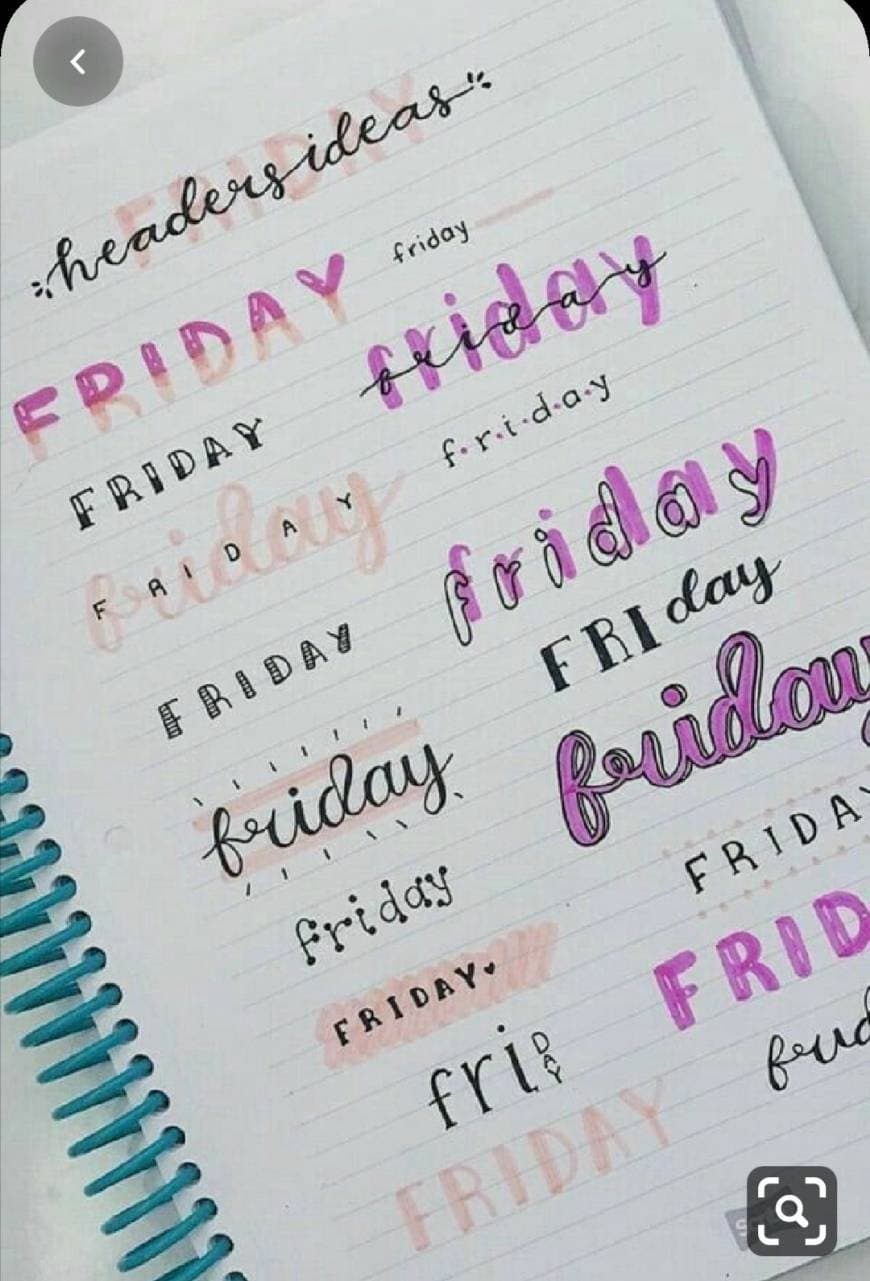 FRIDAY
headers ideas
friday
FRIDAY
friday
friday
FRIDAY
f·r·i·d·a·y
friday
FRIDAY
friday
friday
FRIday
FRIDAY
friday
friday
FRIDAY
friday
FRID
FRIDAY
friDAY
frid
FRIDAY